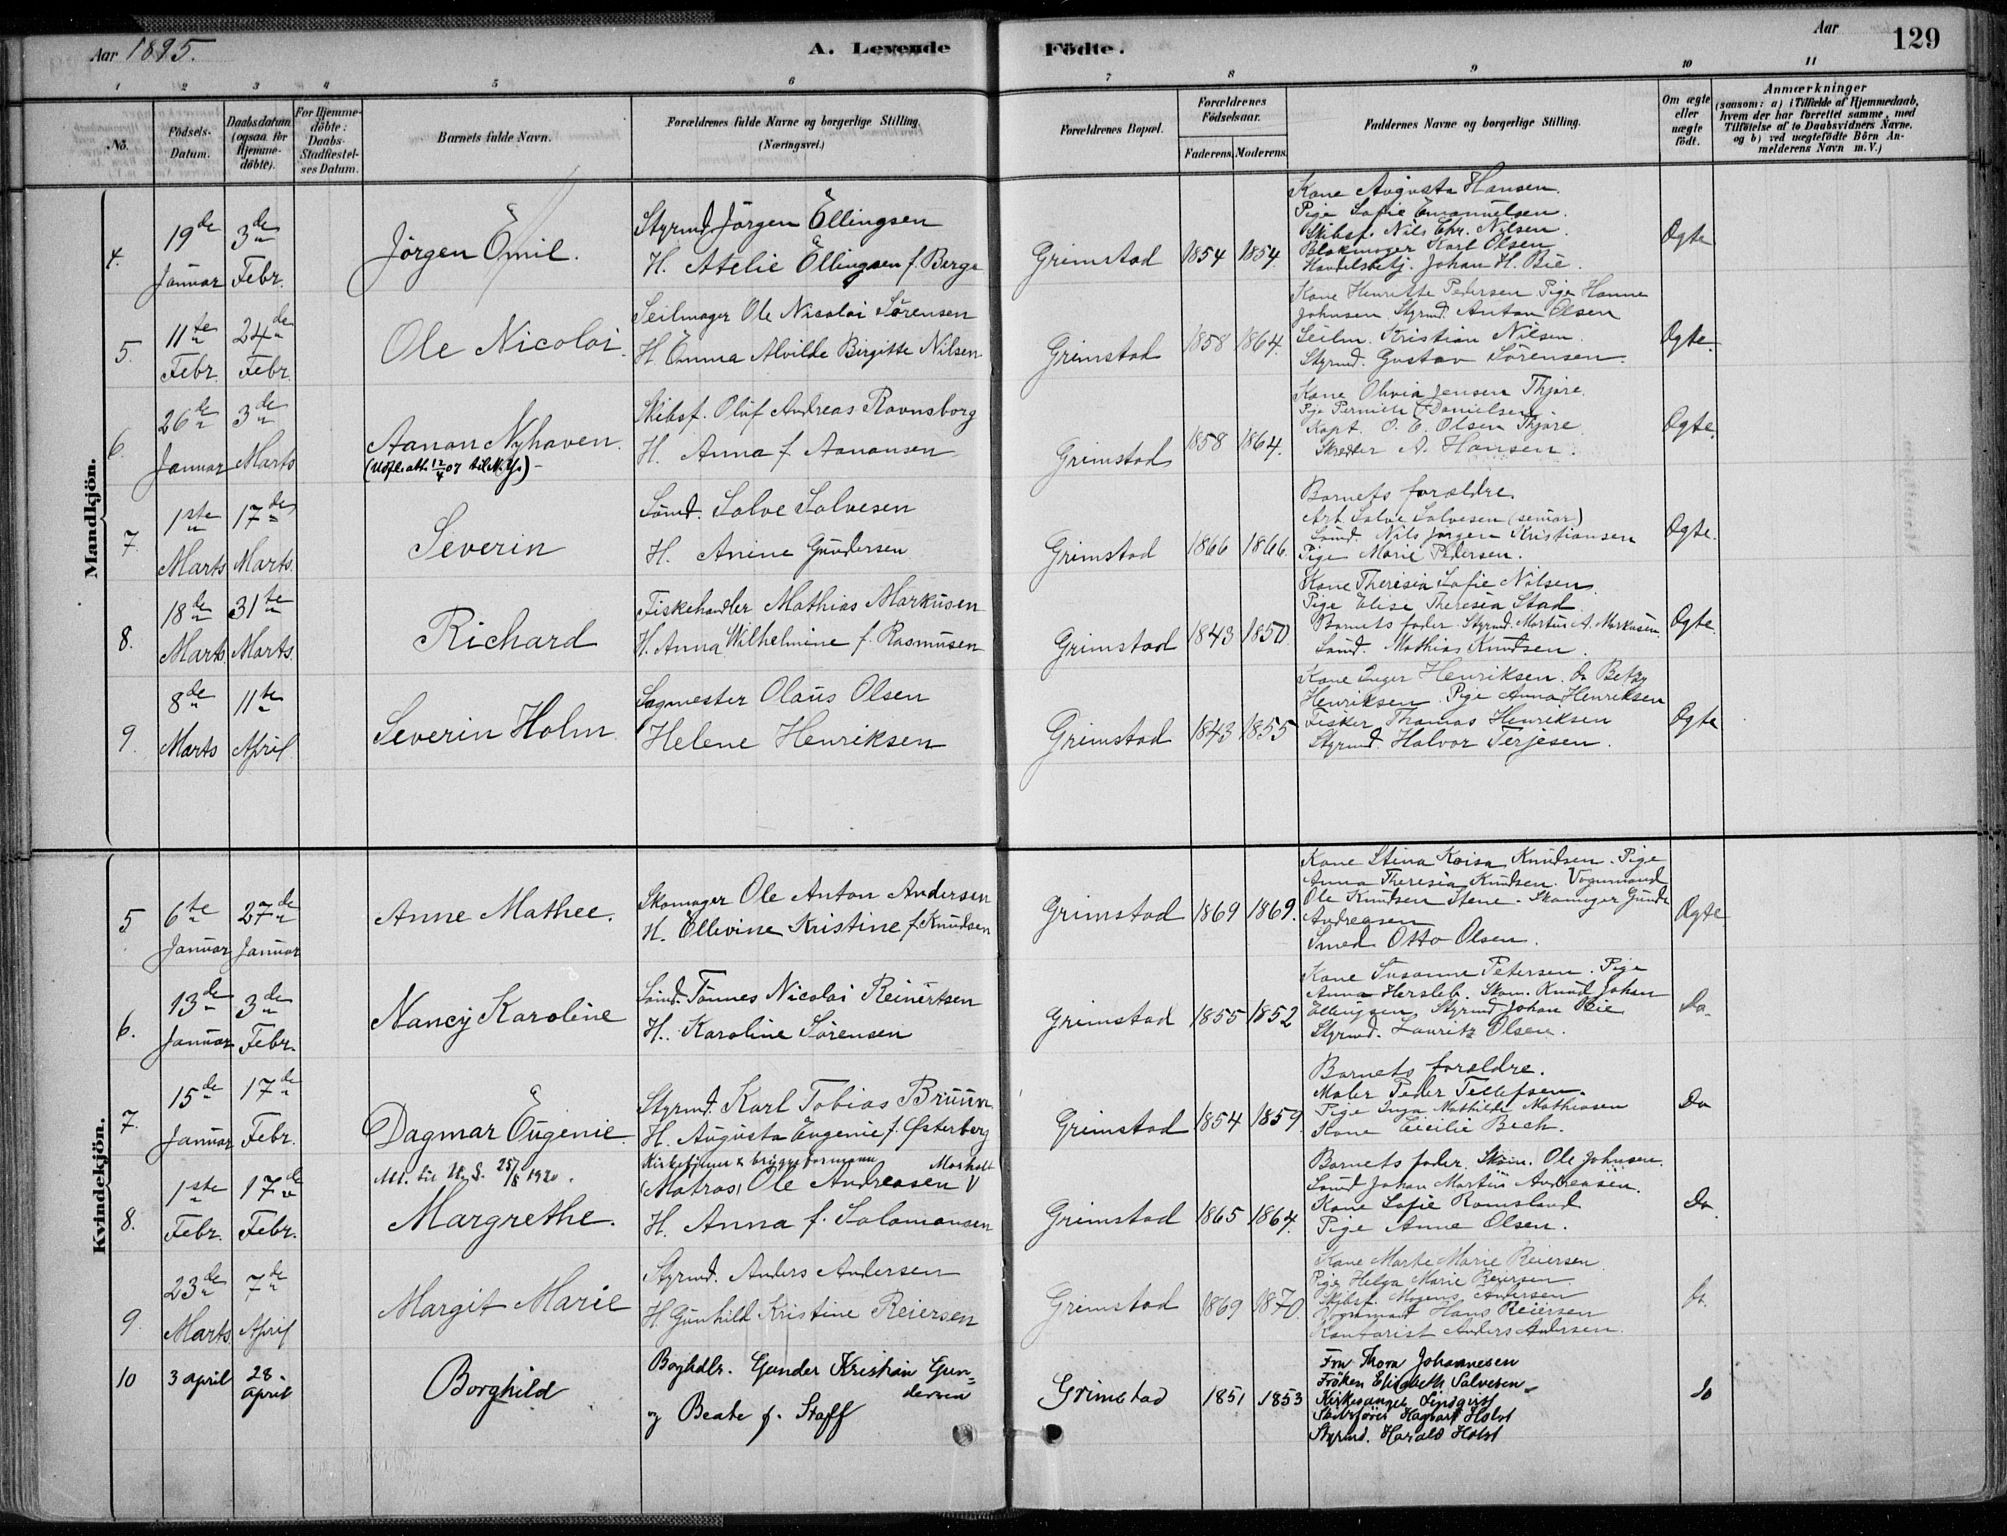 Aar 1895.
A. Levende Födte.
Aar
129
1 2 3 4 5 6 7 8 9 10 11
No.
Födsels-Datum.
Daabsdatum (ogsaa for Hjemmedöbte).
For Hjemmedöbte: Daabs-Stadfæstelses Datum.
Barnets fulde Navn.
Forældrenes fulde Navne og borgerlige Stilling. (Næringsvei.)
Forældrenes Bopæl.
Forældrenes Födselsaar.
Faderens. Moderens.
Faddernes Navne og borgerlige Stilling.
Om ægte eller uægte födt.
Anmærkninger
(saasom: a) i Tilfælde af Hjemmedaab, hvem der har forrettet samme, med Tilföielse af to Daabsvidners Navne, og b) ved uægtefödte Börn Anmelderens Navn m. V.)
Mandkjön.
4. 19de Januar 3de Febr.
Jörgen Emil.
Styrmd. Jörgen Ellingsen
H. Atelie Ellingsen f. Berge
Grimstad 1854 1854.
Kone Augusta Hansen.
Pige Sofie Emanuelsen.
Skibsf. Nils Chr. Nilsen
Blokmager Karl Olsen
Handelsbetj. Johan H. Bie.
Ægte
5. 11te Febr. 24de Febr.
Ole Nicolai.
Seilmager Ole Nicolai Sörensen
H. Emma Alvilde Birgitte Nilsen
Grimstad 1858 1864.
Kone Henriette Pedersen Pige Hanne
Johnsen. Styrmd. Anton Olsen
Seilm. Kristian Nilsen.
Styrmd. Gustav Sörensen.
Ægte.
6. 26de Januar 3de Marts
Aanon Nyhaven.
(Udfl. att. 12/4 07 til N.Y.) -
Skibsf. Oluf Andreas Ravnsborg
H. Anna f. Aanonsen
Grimstad 1858 1864.
Kone Olivia Jensen Thjöre.
Pige Pernille Danielsen
Kapt. O. E. Olsen Thjöre.
Skrædder A. Hansen.
Ægte.
7. 1ste Marts 17de Marts.
Severin
Sömd. Salve Salvesen
H. Anine Gundersen
Grimstad 1866 1866.
Barnets forældre.
Arb. Salve Salvesen (senior.)
Sömd. Nils Jörgen Kristiansen
Pige Marie Pedersen.
Ægte.
8. 18de Marts 31te Marts.
Richard
Fiskehandler Mathias Markusen
H. Anna Wilhelmine f. Rasmusen
Grimstad 1843 1850.
Kone Theresia Sofie Nilsen.
Pige Elise Theresia Stad
Barnets fader. Styrmd. Martin A. Markusen.
Sömd. Mathias Knudsen.
Ægte.
9. 8de Marts 11te April
Severin Holm
Sagmester Olaus Olsen
Helene Henriksen
Grimstad 1843 1855
Kone Inger Henriksen. do Betzy
Henriksen Pige Anna Henriksen
Fisker Thomas Henriksen
Styrmd. Halvor Terjesen.
Ægte
Kvindekjön.
5. 6te Januar 27de Januar
Anne Mathee.
Skomager Ole Anton Andersen
H. Ellevine Kristine f. Knudsen
Grimstad 1869 1869.
Kone Stina Kaisa Knudsen. Pige
Anna Theresia Knudsen. Vognmand
Ole Knudsen Stene. Skomager Gunde
Andreasen
Smed Otto Olsen.
Ægte
6. 13de Januar 3de Febr.
Nancy Karoline
Sömd. Tönnes Nicolai Reinertsen
H. Karoline Sörensen
Grimstad 1855 1852
Kone Susanne Petersen. Pige
Anna Hersleb. Skom. Knud Johan
Ellingsen Styrmd Johan Bie
Styrmd. Lauritz Olsen.
Do.
7. 15de Januar 17de Febr.
Dagmar Eugenie
Styrmd. Karl Tobias Bruun
H. Augusta Eugenie f. Østerberg
Grimstad 1854 1859.
Barnets forældre.
Maler Peder Tellefsen.
Pige Inga Mathilde Mathiasen
Kone Cicilie Bech.
Do
8. 1ste Febr. 17de Febr.
Att. til U. S. 25/8 1920.
Margrethe.
Kirketjener & bryggeformann
(Matros) Ole Andreasen V Morholt
H. Anna f. Salomonsen
Grimstad 1865 1864.
Barnets fader. Skom. Ole Johnsen.
Sömd Johan Martin Andreasen.
Kone Sofie Romsland
Pige Anne Olsen.
Do.
9. 23de Marts 7de April
Margit Marie
Styrmd. Anders Andersen
H. Gunhild Kristine Reiersen
Grimstad 1869 1870.
Kone Marte Marie Reiersen.
Pige Helga Marie Reiersen.
Skibsf. Mogens Andersen
Vognmand Hans Reiersen
Kontorist Anders Andersen.
10 3 april 28. april
Borghild
Boghdlr. Gunder Kristian Gundersen
og Beate f. Staff
Grimstad 1851 1853
Fru Thora Johannesen
Fröken Elisabeth Salvesen
Kirkesanger Lindqvist
Skibsförer Hagbart Holst
Styrmd. Harald Holst
do